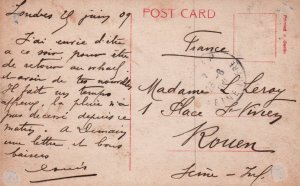 Londres 29 juin 09
POST CARD
J'ai envie d'être
à ce soir pour être
de retour au
d'avoir de tes nouvelles
Il fait un temps
affreux, la pluie n'a
pas cessé depuis ce
matin. A Demain
une lettre et bons
baisers
Louis
France
Madame Leroy
1 Place St Vivien
Rouen
Seine-Inf.